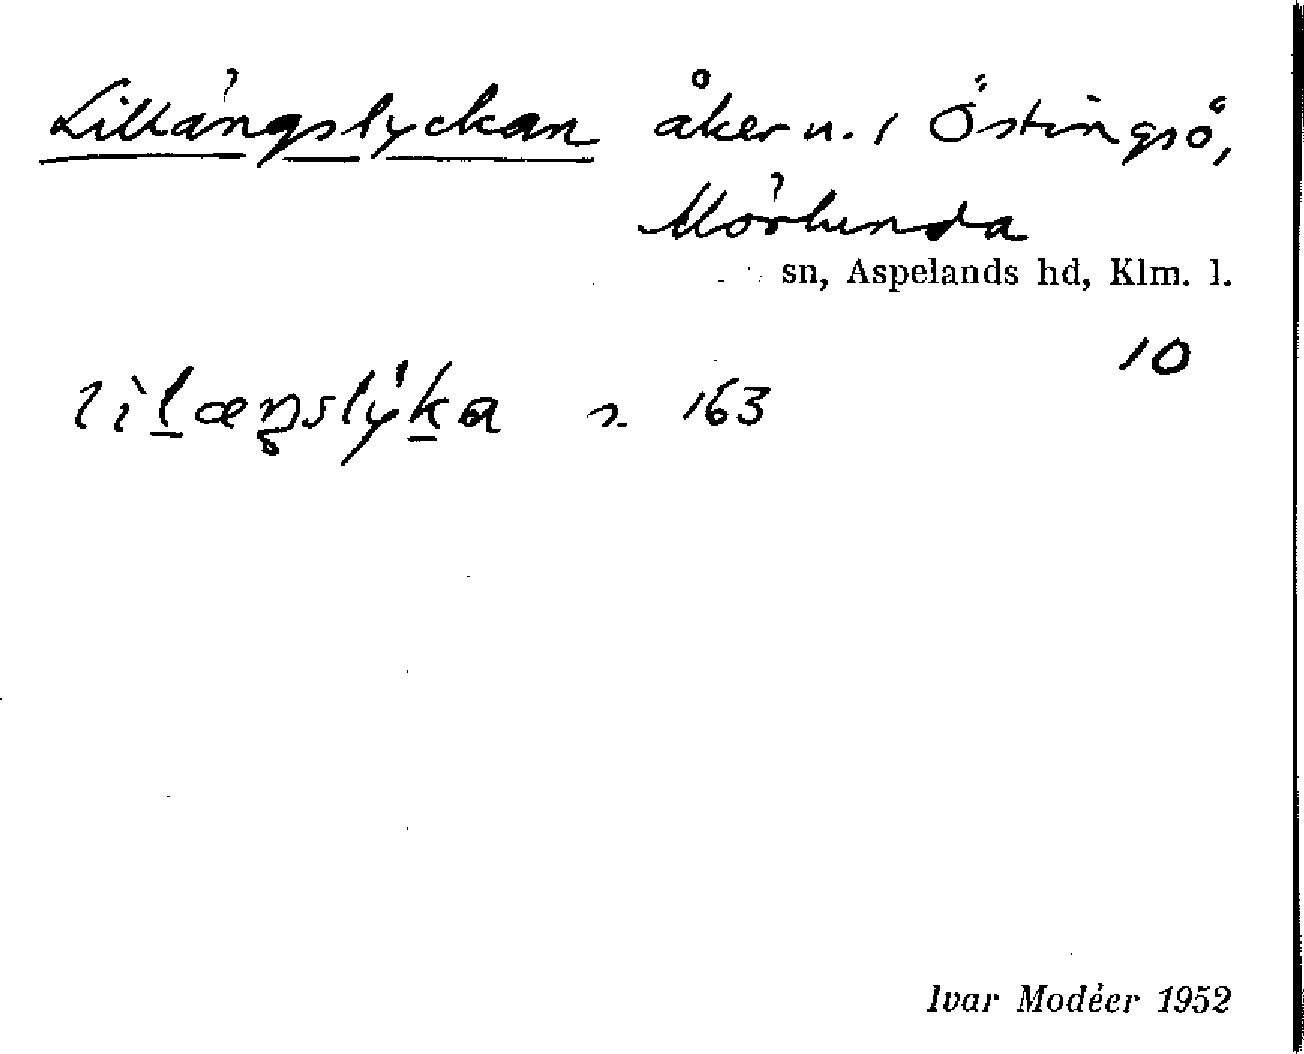 Lillängslyckan åkern. i Östingsö,
Mörlunda
sn, Aspelands hd, Klm. l.
10
lìl̲æŋslýk̲a n. 163
Ivar Modéer 1952